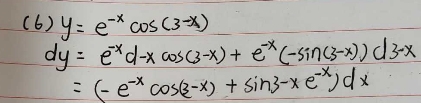 (6) y = e^-x cos(3-x)
dy = e^-x d-x cos(3-x) + e^-x (-sin(3-x)) d3-x
= (-e^-x cos(3-x) + sin3-x e^-x) dx